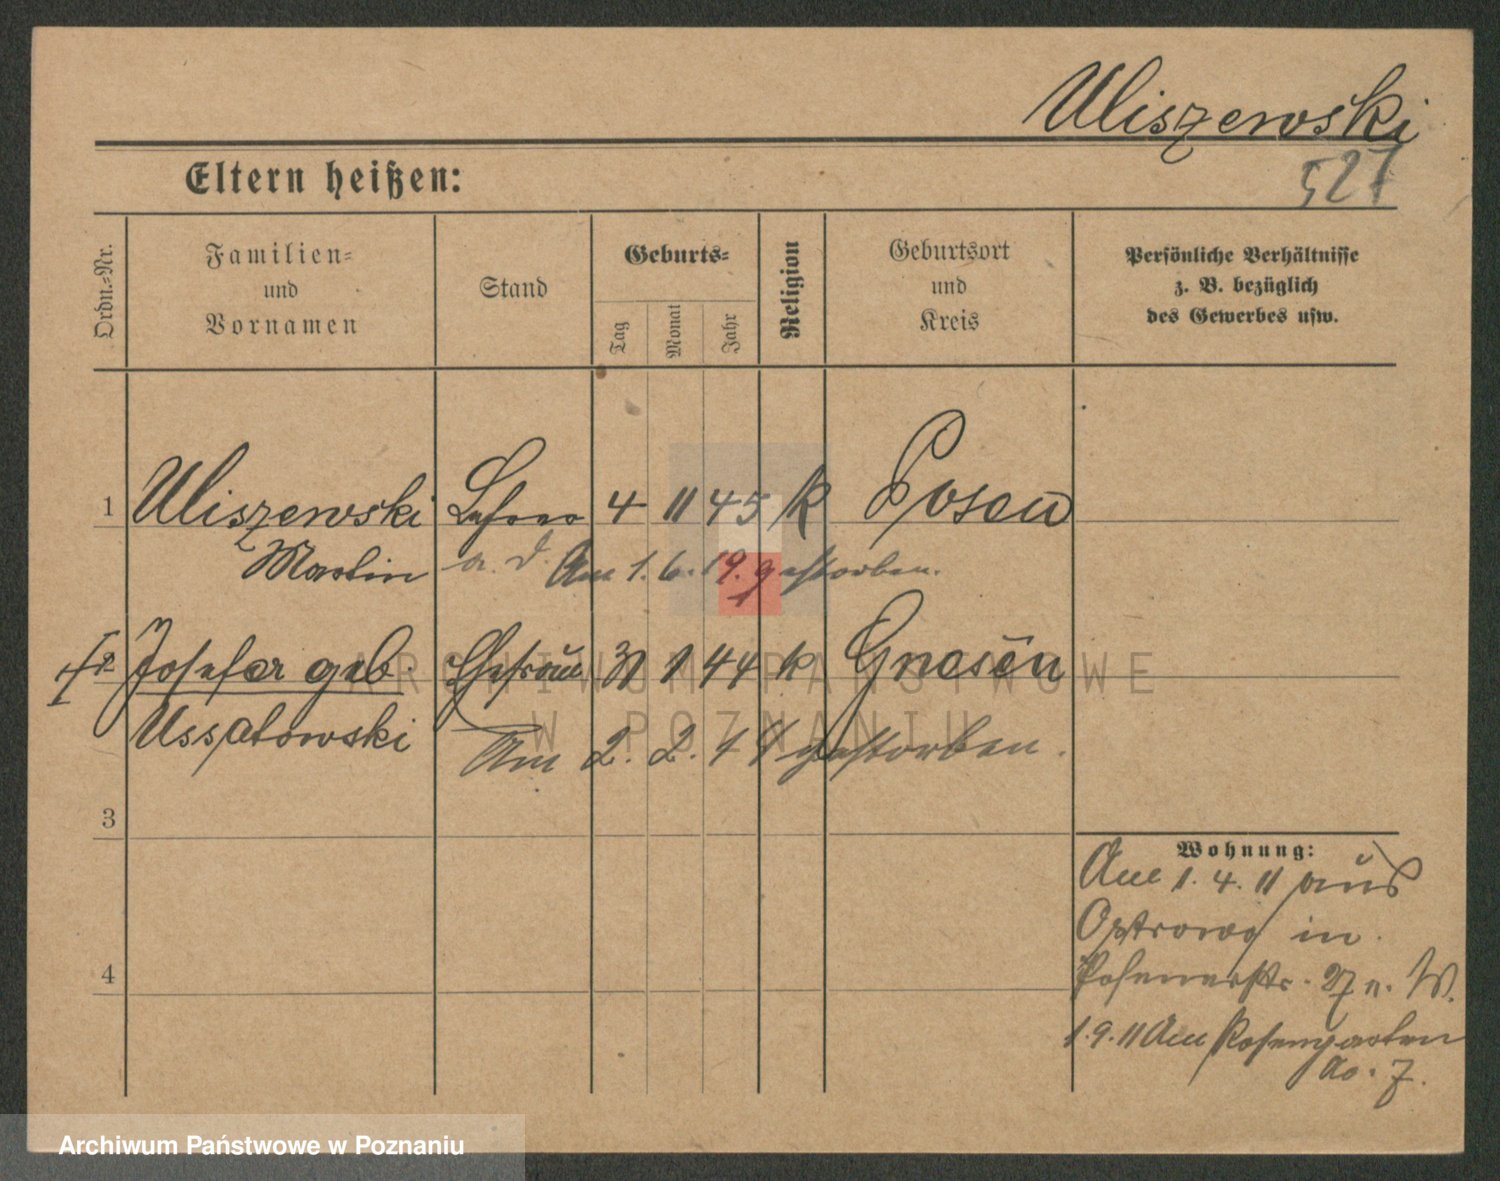 Uliszewski
527
Eltern heißen:
Ordn.-Nr.
Familien-
und
Vornamen
Stand
Geburts-
Tag
Monat
Jahr
Religion
Geburtsort
und
Kreis
Persönliche Verhältnisse
z. B. bezüglich
des Gewerbes usw.
1 Uliszewski Lehrer 4 11 45 k Posen
Martin a. D. Am 1. 6. 19. gestorben.
2 Josefa geb. Ehefrau 31 1 44 k Gnesen
Ussatowski
Am 2. 2. 14 gestorben.
3
4
Wohnung:
Am 1. 4. 11 aus
Ostrowo in
Posenerstr. 27 n. W.
1. 9. 11 Am Rosengarten
No. 7.
ARCHIWUM PAŃSTWOWE
W POZNANIU
Archiwum Państwowe w Poznaniu